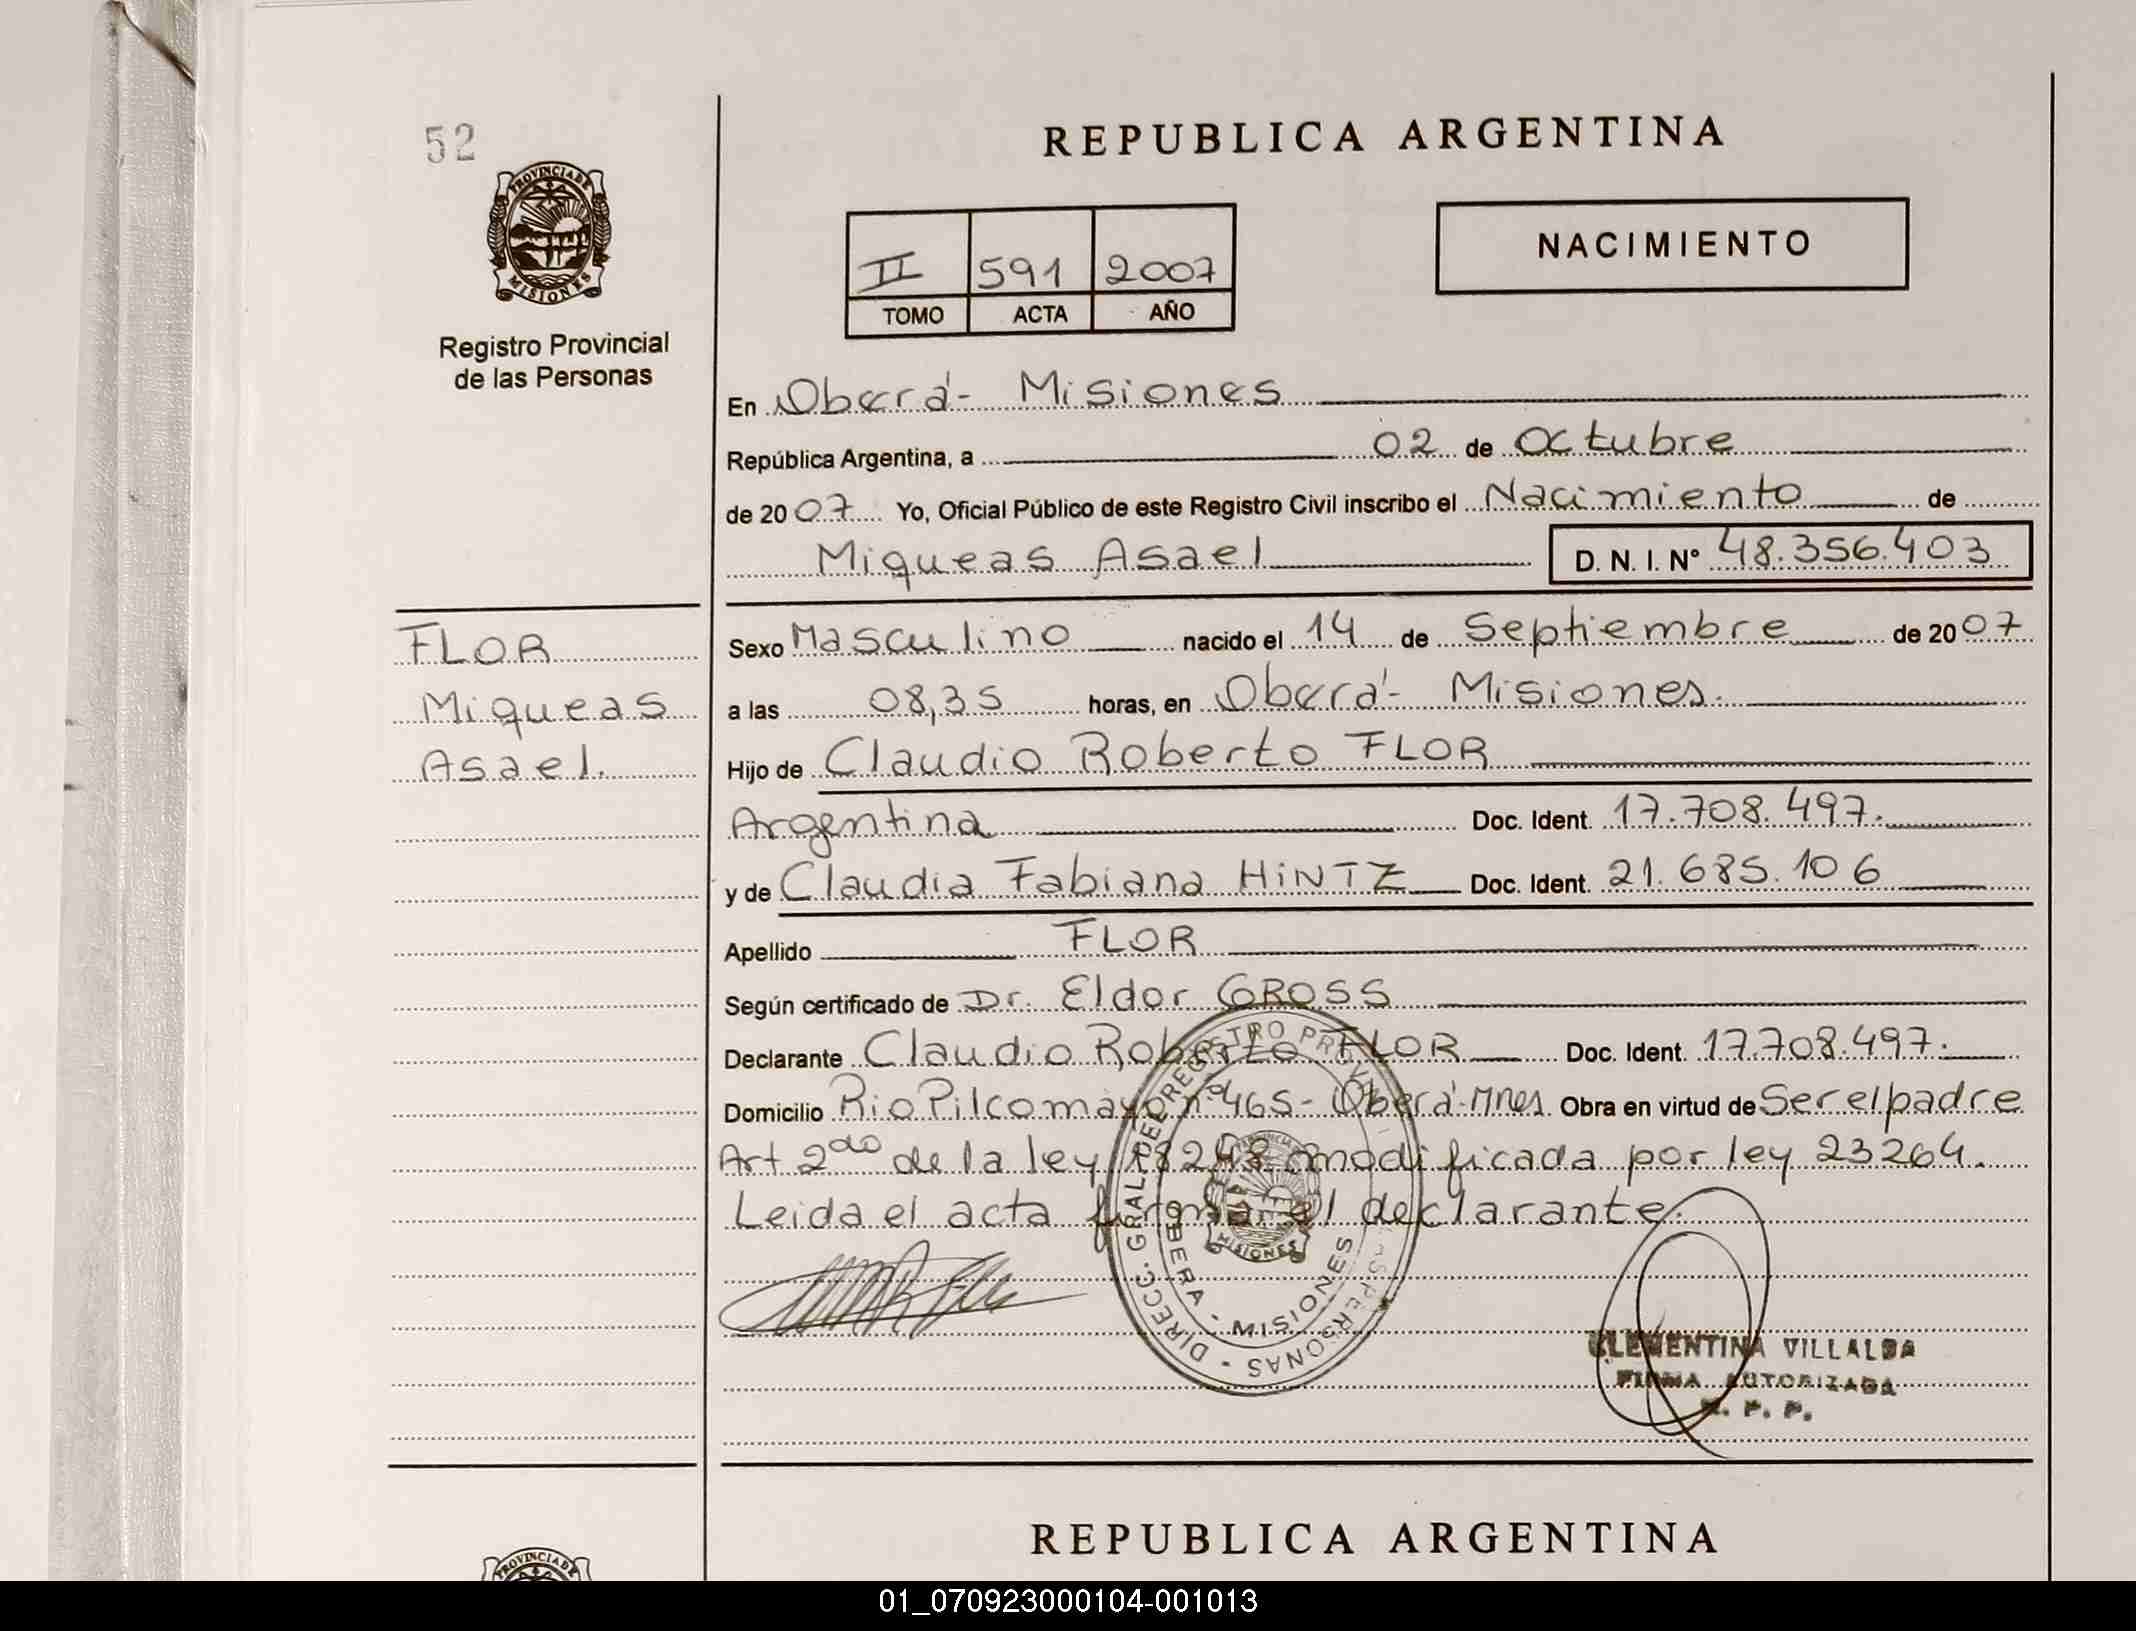 52
REPUBLICA ARGENTINA
PROVINCIA DE
MISIONES
Registro Provincial
de las Personas
II 591 2007
TOMO ACTA AÑO
NACIMIENTO
En Oberá - Misiones
República Argentina, a 02 de Octubre
de 2007 Yo, Oficial Público de este Registro Civil inscribo el Nacimiento de
Miqueas Asael D. N. I. Nº 48.356.403
FLOR
Miqueas
Asael.
Sexo Masculino nacido el 14 de Septiembre de 2007
a las 08,35 horas, en Oberá - Misiones.
Hijo de Claudio Roberto FLOR
Argentina Doc. Ident. 17.708.497.
y de Claudia Fabiana HiNTZ Doc. Ident. 21.685.106
Apellido FLOR
Según certificado de Dr. Eldor GROSS
Declarante Claudio Roberto FLOR Doc. Ident. 17.708.497.
Domicilio Rio Pilcomayo nº 465 - Oberá - Mnes. Obra en virtud de Ser el padre
Art 2do de la ley 18248 modificada por ley 23264.
Leida el acta firma el declarante.
DIRECC. GRAL DEL REGISTRO PROVINCIAL PERSONAS
OBERA - MISIONES
MISIONES
CLEMENTINA VILLALBA
FIRMA AUTORIZADA
R. P. P.
REPUBLICA ARGENTINA
PROVINCIA DE
01_070923000104-001013